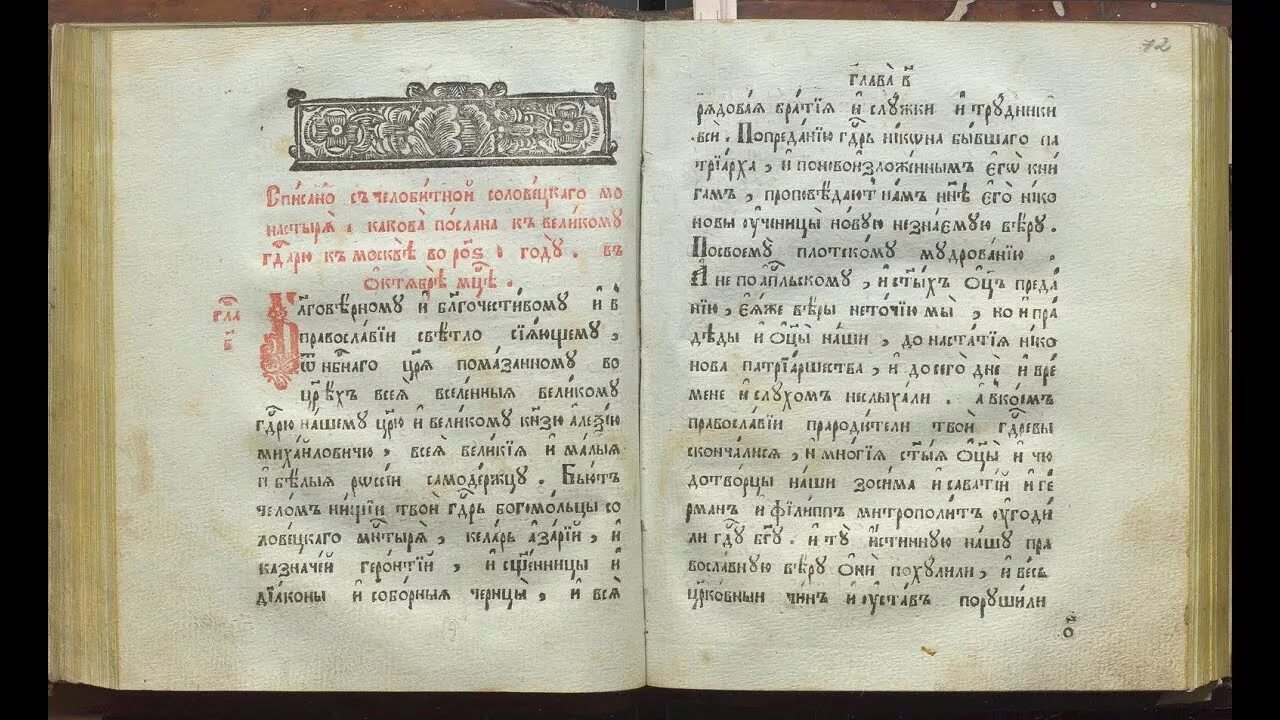 Спи́сано̀ съ челоби́тной солове́цкаго мо
настырѧ̀ . какова̀ по́слана к̾ вели́кому
гдⷭ҇рю къ москвѣ̀ во рⷪ҇ѕ . годꙋ̀ . въ
Ѻ҆ктѧбрѣ̀ мцⷭ҇ѣ .
гла
Бл҃говѣ́рному и҆ бл҃гочести́вому и҆ в
правосла́вїи свѣ́тло сїѧ́ющему ,
ѿ нбⷭ҇наго цр҃ѧ̀ пома́занному во
цр҃ѣ́хъ всеѧ̀ вселе́нныѧ вели́кому
гдⷭ҇рю на́шему цр҃ю̀ и҆ вели́кому кнз҃ю а҆леѯі́ю
миха́йловичю , всеѧ̀ вели́кїѧ и҆ ма́лыѧ
и҆ бѣ́лыѧ рѡссі́и самоде́ржцу . Бью́тъ
чело́мъ ни́щїи твоѝ гдⷭ҇рь богомо́льцы со
лове́цкаго мⷭ҇нтырѧ̀ , ке́ларь а҆за́рїй , и҆
казначе́й геро́нтїй , и҆ сщ҃е́нницы и҆
дїа́коны и҆ собо́рныѧ черицы̀ , и҆ всѧ̀
72
глава̀ в҃
рѧдова́ѧ бра́тїѧ и҆ слу́жки и҆ тру́дники
вси̂ . По преда́нїю гдⷭ҇рь ни́кѡна бы́вшаго па
трїа́рха , и҆ поновои́зло́женнымъ є҆гѡ̀ кни
гамъ , проповѣ́даютъ на́мъ нн҃ѣ є҆го̀ ни́ко
новы ᲂу҆ченицы̀ но́вую незна́емую вѣ́ру .
По своему̀ пло́тскому мудрова́нїю .
А҆ не по а҆пⷭ҇льскому , и҆ ст҃ы́хъ ѻ҆ц҃ъ преда́
нїю , є҆ѧ́же вѣ́ры не то́чїю мы̀ , но и҆ пра́
дѣды и҆ ѻ҆ц҃ы̀ на́ши , до наста́тїѧ ни́ко
нова патрїа́ршества , и҆ до сего̀ днѐ и҆ вре́
мене и҆ слу́хомъ неслыха́ли . а҆ в ко́емъ
правосла́вїи прароди́тели твоѝ гдⷭ҇ревы
сконча́лисѧ , и҆ мно́гїѧ ст҃ы́ѧ ѻ҆ц҃ы̀ и҆ чю
дотво́рцы на́ши зоси́ма и҆ сава́тїй и҆ ге́
рманъ и҆ фили́ппъ митрополи́тъ ᲂу҆годи́
ли гдⷭ҇у бг҃у . и҆ ту̀ и҆́стинную на́шу пра
восла́вную вѣ́ру ѻ҆нѝ поху́лили , и҆ ве́сь
црⷪ҇ковный чи́нъ и҆ ᲂу҆ста́въ пору́шили